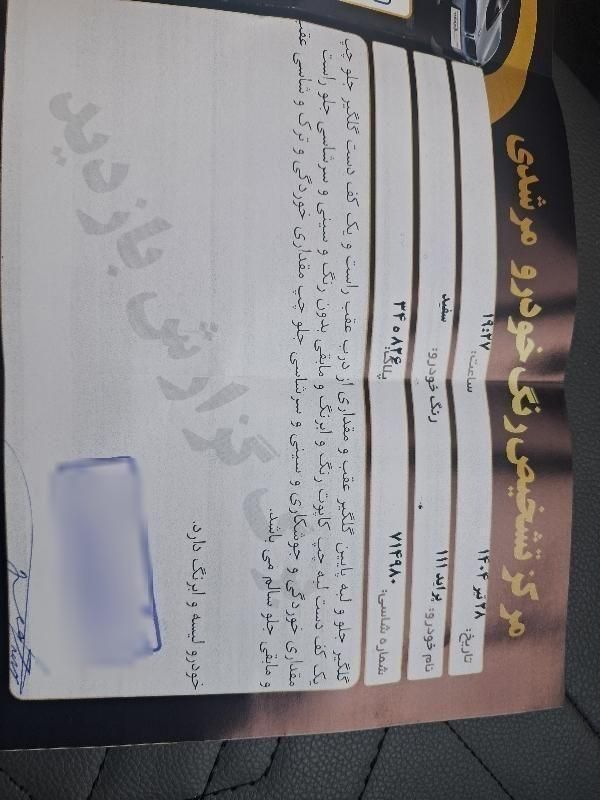 مرکز تشخیص رنگ خودرو مرشدی
تاریخ: ۲۸ تیر ۱۴۰۴
ساعت: ۱۹:۲۷
نام خودرو: پراید ۱۱۱
رنگ خودرو: سفید
شماره شاسی: ۷۱۴۹۸۰
پلاک: ۳۴۰۸۲۶
گلگیر جلو و لبه پایین گلگیر عقب و مقداری از درب عقب راست و یک کف دست گلگیر جلو چپ
یک کف دست لبه چپ کاپوت رنگ و ابرنگ و مابقی بدون رنگ و سینی و سرشاسی جلو راست
مقداری خوردگی و جوشکاری و سینی و سرشاسی جلو چپ مقداری خوردگی و ترک و شاسی عقب
و مابقی جلو سالم می باشد.
خودرو لیسه و ابرنگ دارد.
گزارش بازدید